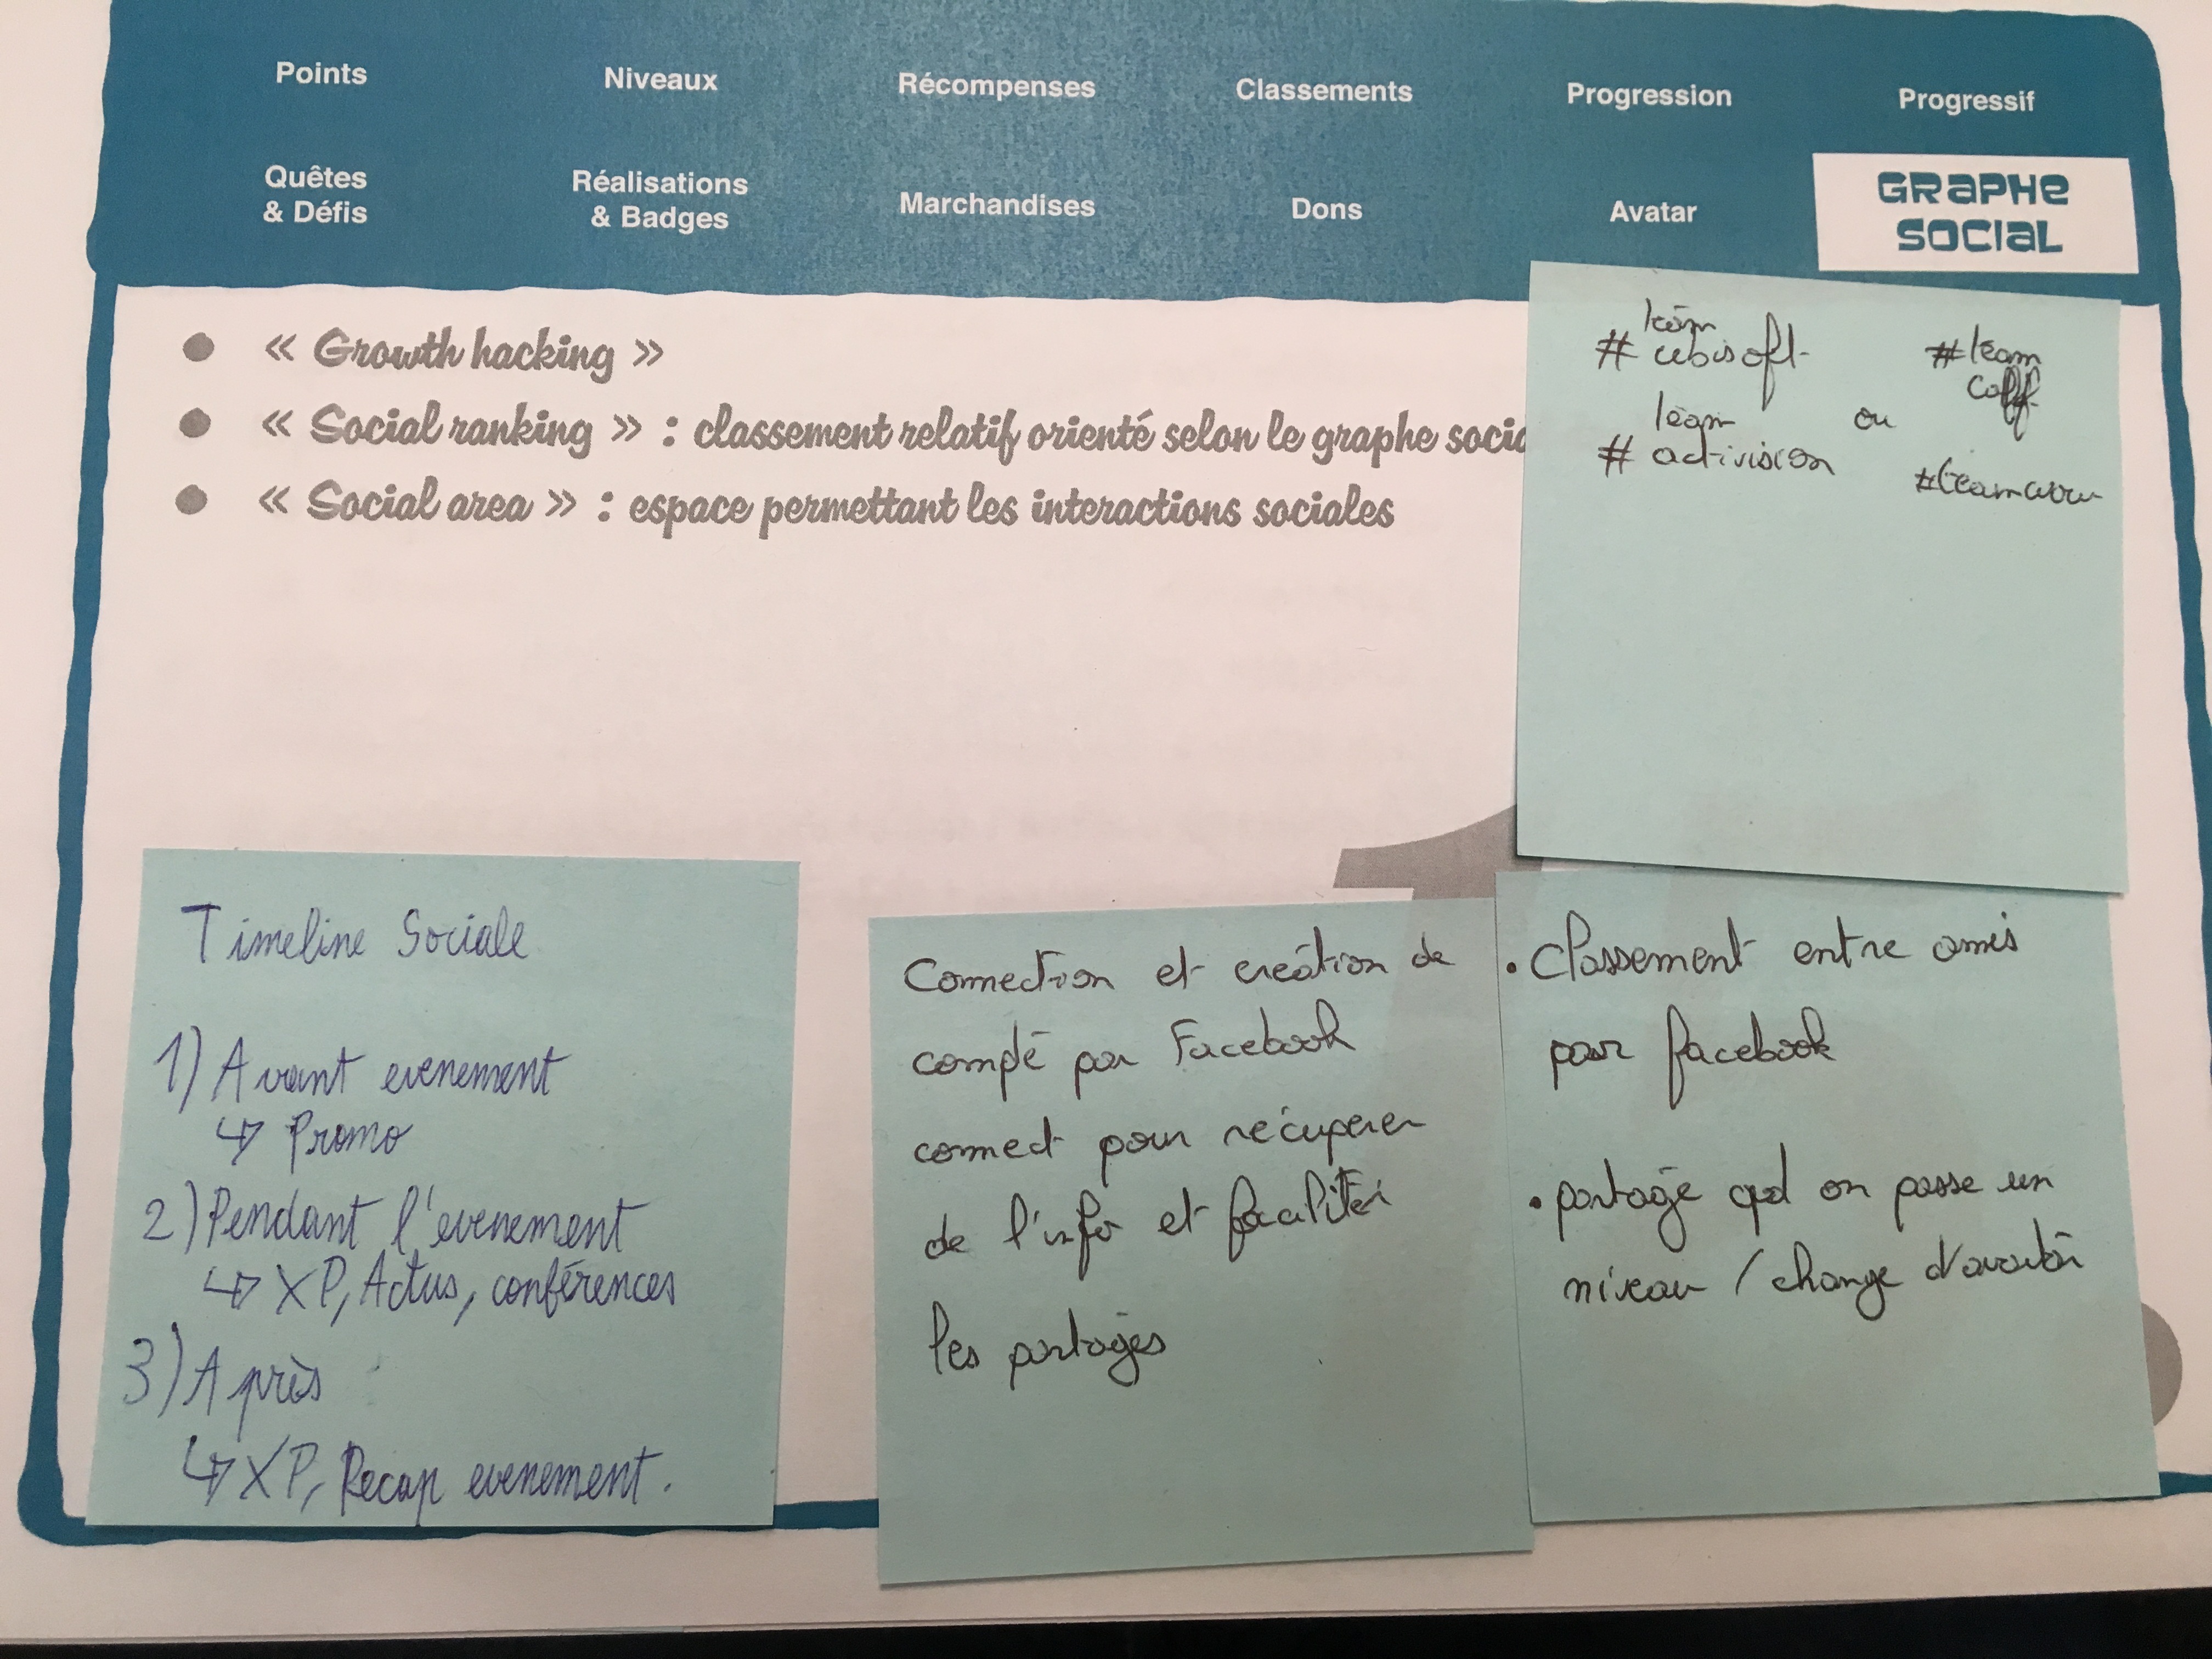 Points Niveaux Récompenses Classements Progression Progressif
Quêtes
& Défis
Réalisations
& Badges
Marchandises
Dons
Avatar
GRAPHE
SOCIAL
« Growth hacking »
« Social ranking » : classement relatif orienté selon le graphe socia
« Social area » : espace permettant les interactions sociales
team
# ubisoft
team
# activision
ou
#team
#team
Timeline Sociale
1) Avant evenement
↳ Promo
2) Pendant l'evenement
↳ XP, Actus, conférences
3) Après
↳ XP, Recap evenement.
Connection et création de
compte par Facebook
connect pour récuperer
de l'info et faciliter
les partages
• Classement entre amis
pour facebook
• partage qd on passe un
niveau / change d'avatar